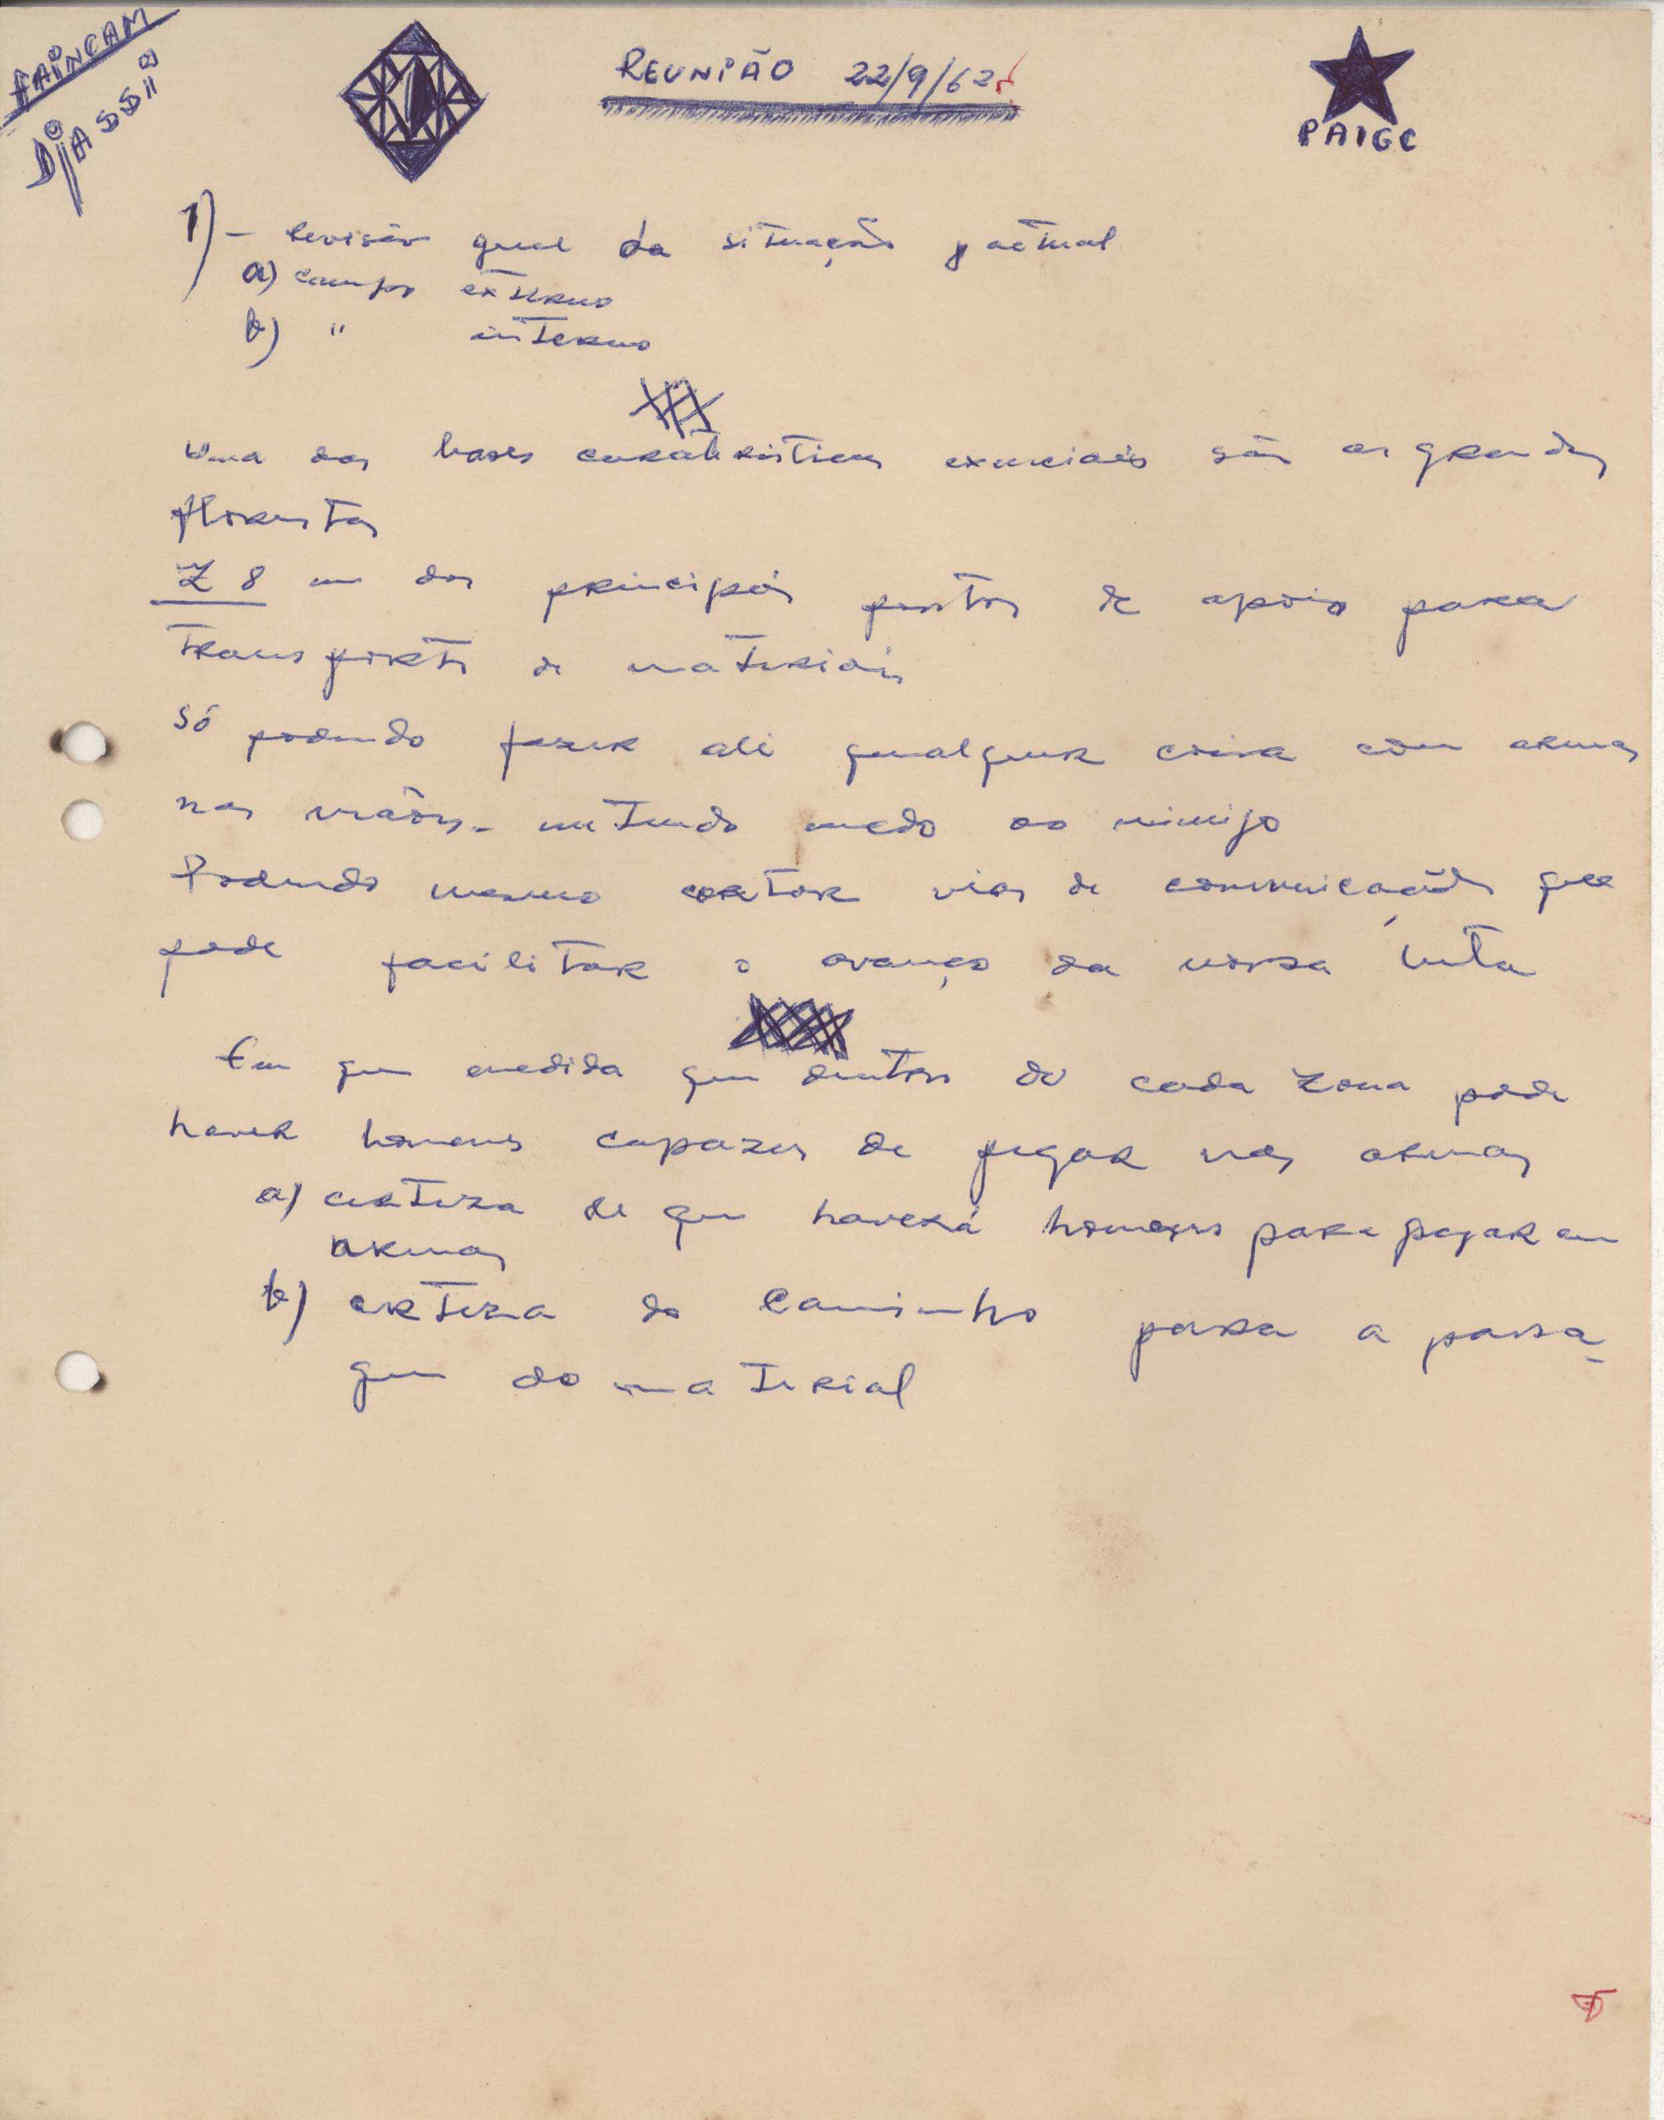 FAINCAM
DJASSI
REUNIÃO 22/9/62
PAIGC
1) - Revisão geral da situação actual
a) campo externo
b) " interno
Uma das bases essenciais são as grandes
florestas
Z 8 um dos principais pontos de apoio para
transporte de materiais
Só podendo fazer ali qualquer coisa com armas
nas mãos - metendo medo ao inimigo
Podendo mesmo cortar vias de comunicação que
pode facilitar o avanço da nossa luta
Em que medida que dentro de cada zona pode
haver homens capazes de pegar nas armas
a) certeza de que haverá homens para pegar em
armas
b) certeza do caminho para a passa-
gem do material